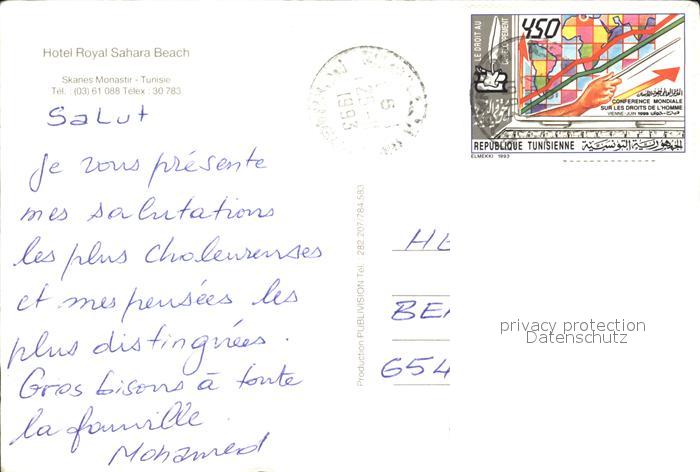 Hotel Royal Sahara Beach
Skanes Monastir - Tunisie
Tél. : (03) 61 088 Télex : 30 783
Salut
Je vous présente
mes salutations
les plus chaleureuses
et mes pensées les
plus distinguées.
Gros bisous à toute
la famille.
Mohamed
Production PUBLIVISION Tél. : 282.207/784.583
1993
LE DROIT AU
DEVELOPPEMENT
450
CONFERENCE MONDIALE
SUR LES DROITS DE L'HOMME
VIENNE - JUIN 1993
REPUBLIQUE TUNISIENNE الجمهورية التونسية
ELMEKKI 1993
HE
BE
654
privacy protection
Datenschutz